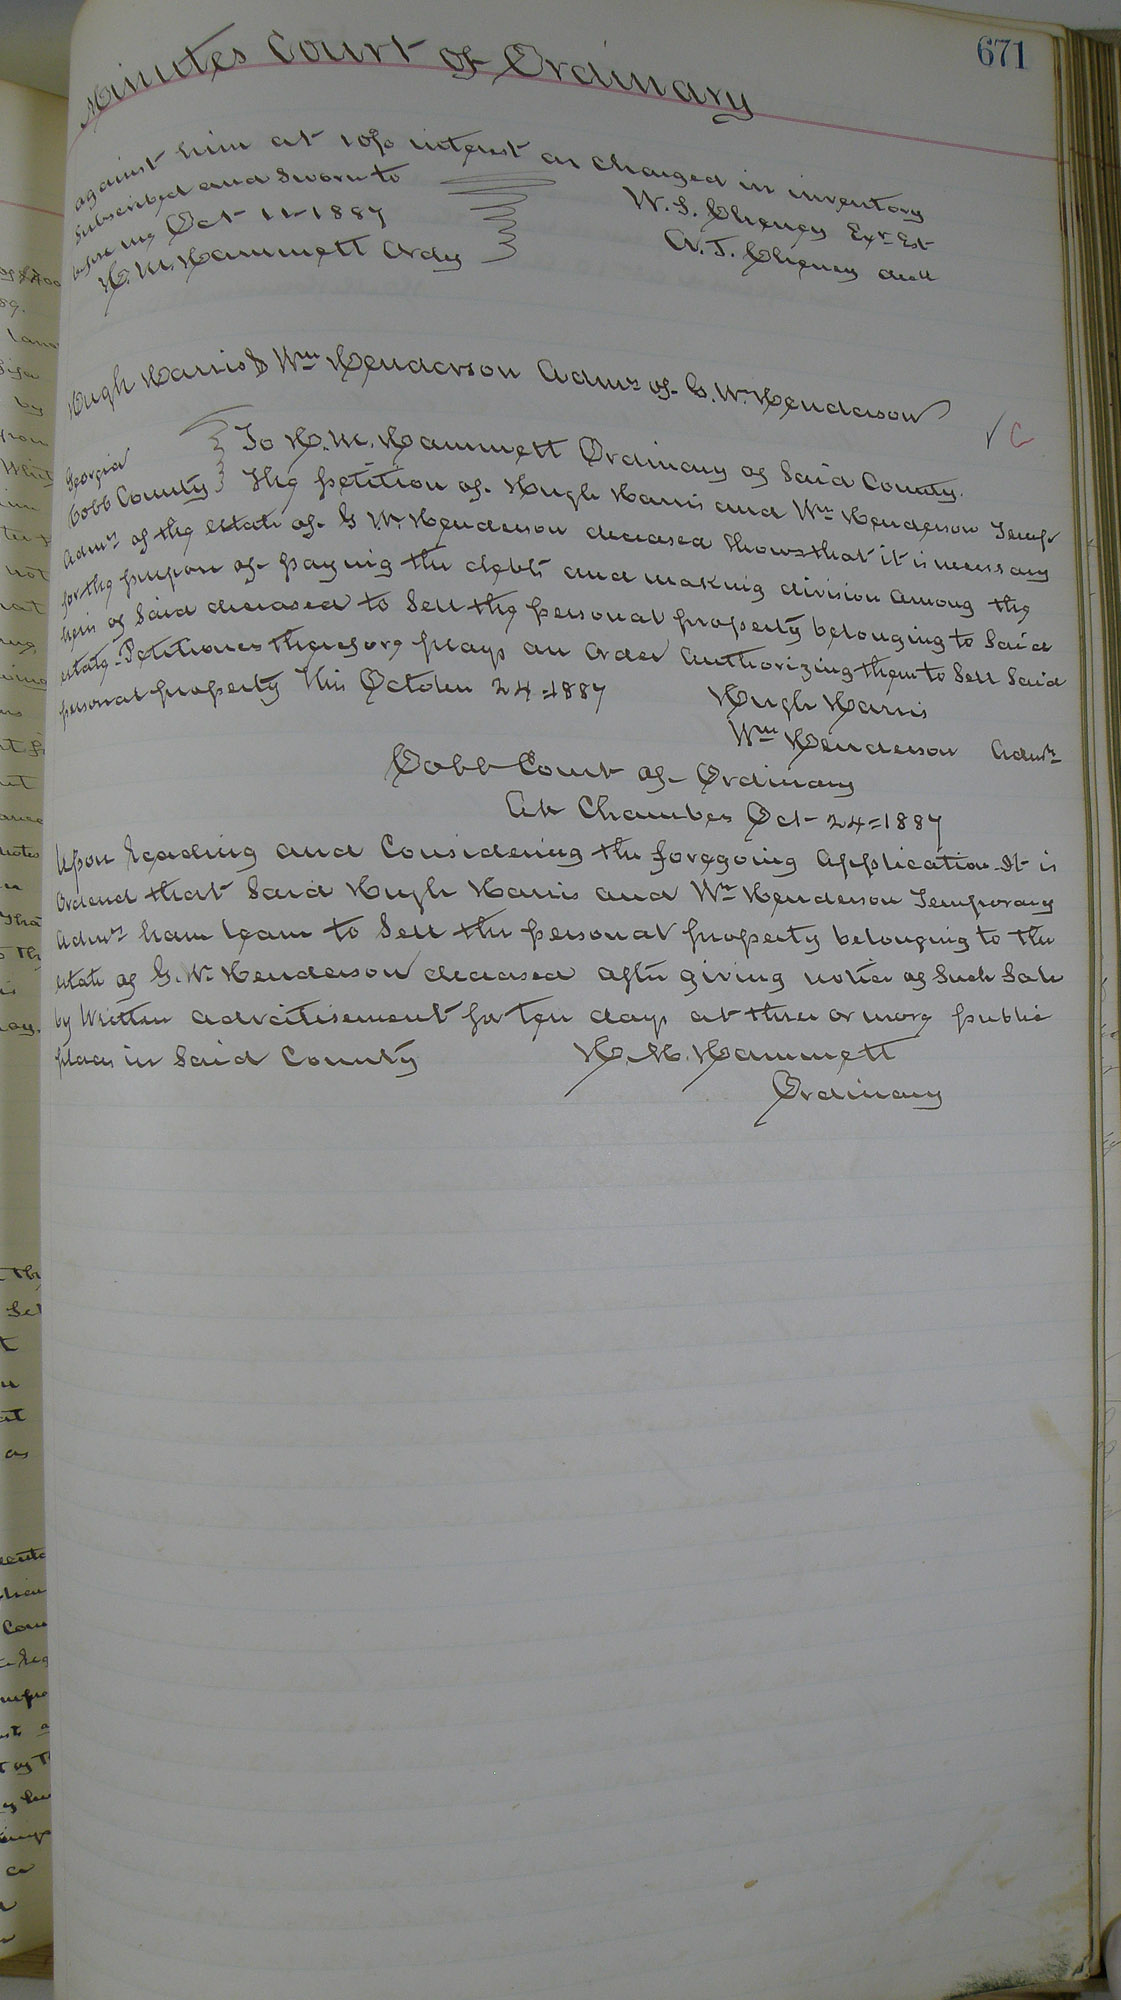 671
Minutes Court of Ordinary
against him at 10% interest as charged in inventory
Subscribed and Sworn to
before me Oct 11-1887
H. M. Hammett Ordy
W. S. Cheney Exr Est
A. J. Cheney decd
Hugh Harris & Wm Henderson Admrs of G. W. Henderson
√ C
Georgia
Cobb County
To H. M. Hammett Ordinary of Said County.
The petition of Hugh Harris and Wm Henderson Temp
Admrs of the estate of G W. Henderson deceased Shows that it is necessary
for the purpose of paying the debts and making division among the
heirs of Said deceased to Sell the personal property belonging to Said
estate - Petitioners therefore prays an order authorizing them to Sell Said
personal property this October 24-1887
Hugh Harris
Wm Henderson Admrs
Cobb Court of Ordinary
At Chambers Oct - 24-1887
Upon reading and Considering the foregoing application It is
Ordered that Said Hugh Harris and Wm Henderson Temporary
Admrs have leave to Sell the personal property belonging to the
estate of G. W. Henderson deceased after giving notice of Such Sale
by Written advertisement for ten days at three or more public
places in Said County
H. M. Hammett
Ordinary